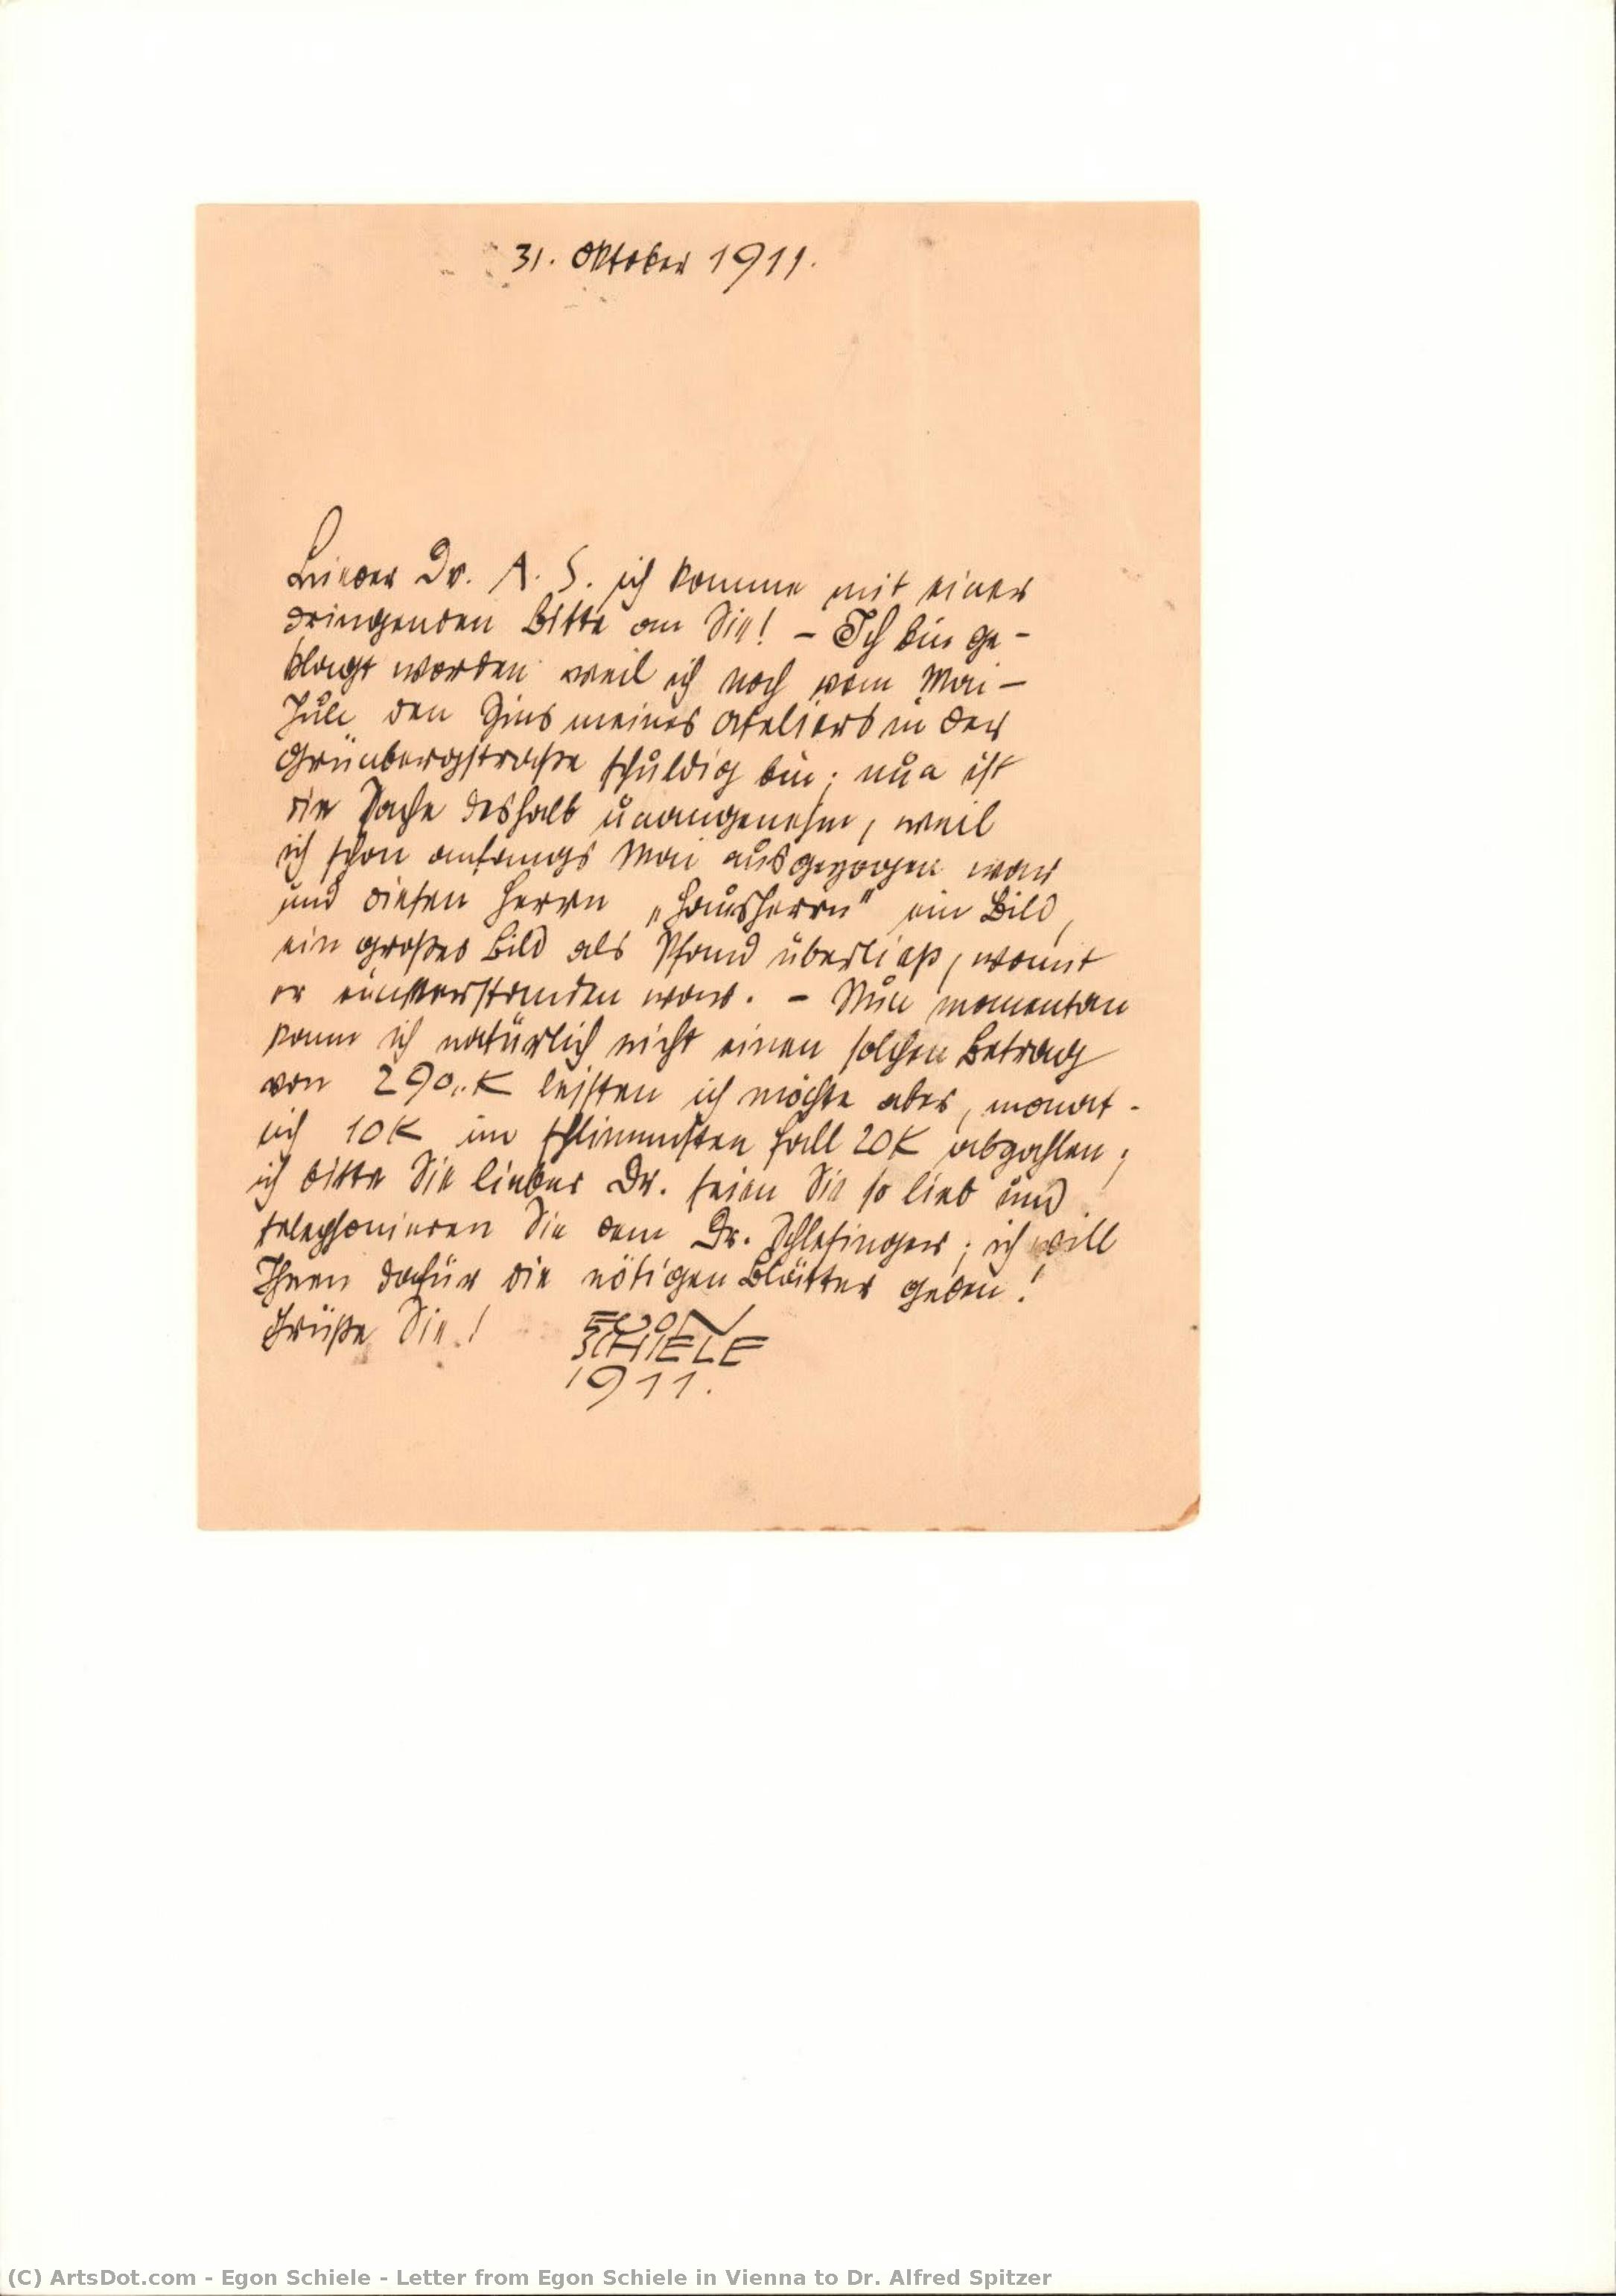 31. Oktober 1911.
Lieber Dr. A. S. ich komme mit einer
dringenden Bitte an Sie! – Ich bin ge-
klagt worden weil ich noch vom Mai –
Juli den Zins meines Ateliers in der
Grünbergstraße schuldig bin; nun ist
die Sache deshalb unangenehm, weil
ich schon anfangs Mai ausgezogen war
und diesen Herrn „Hausherrn" ein Bild,
ein großes Bild als Pfand überließ, womit
er einverstanden war. – Nun momentan
kann ich natürlich nicht einen solchen Betrag
von 290.. K leisten ich möchte aber, monat-
lich 10 K im schlimmsten Fall 20 K abzahlen;
ich bitte Sie lieber Dr. seien Sie so lieb und
telephonieren Sie dem Dr. Schlesinger; ich will
Ihnen dafür die nötigen Blätter geben!
Grüße Sie!
EGON
SCHIELE
1911.
(C) ArtsDot.com - Egon Schiele - Letter from Egon Schiele in Vienna to Dr. Alfred Spitzer